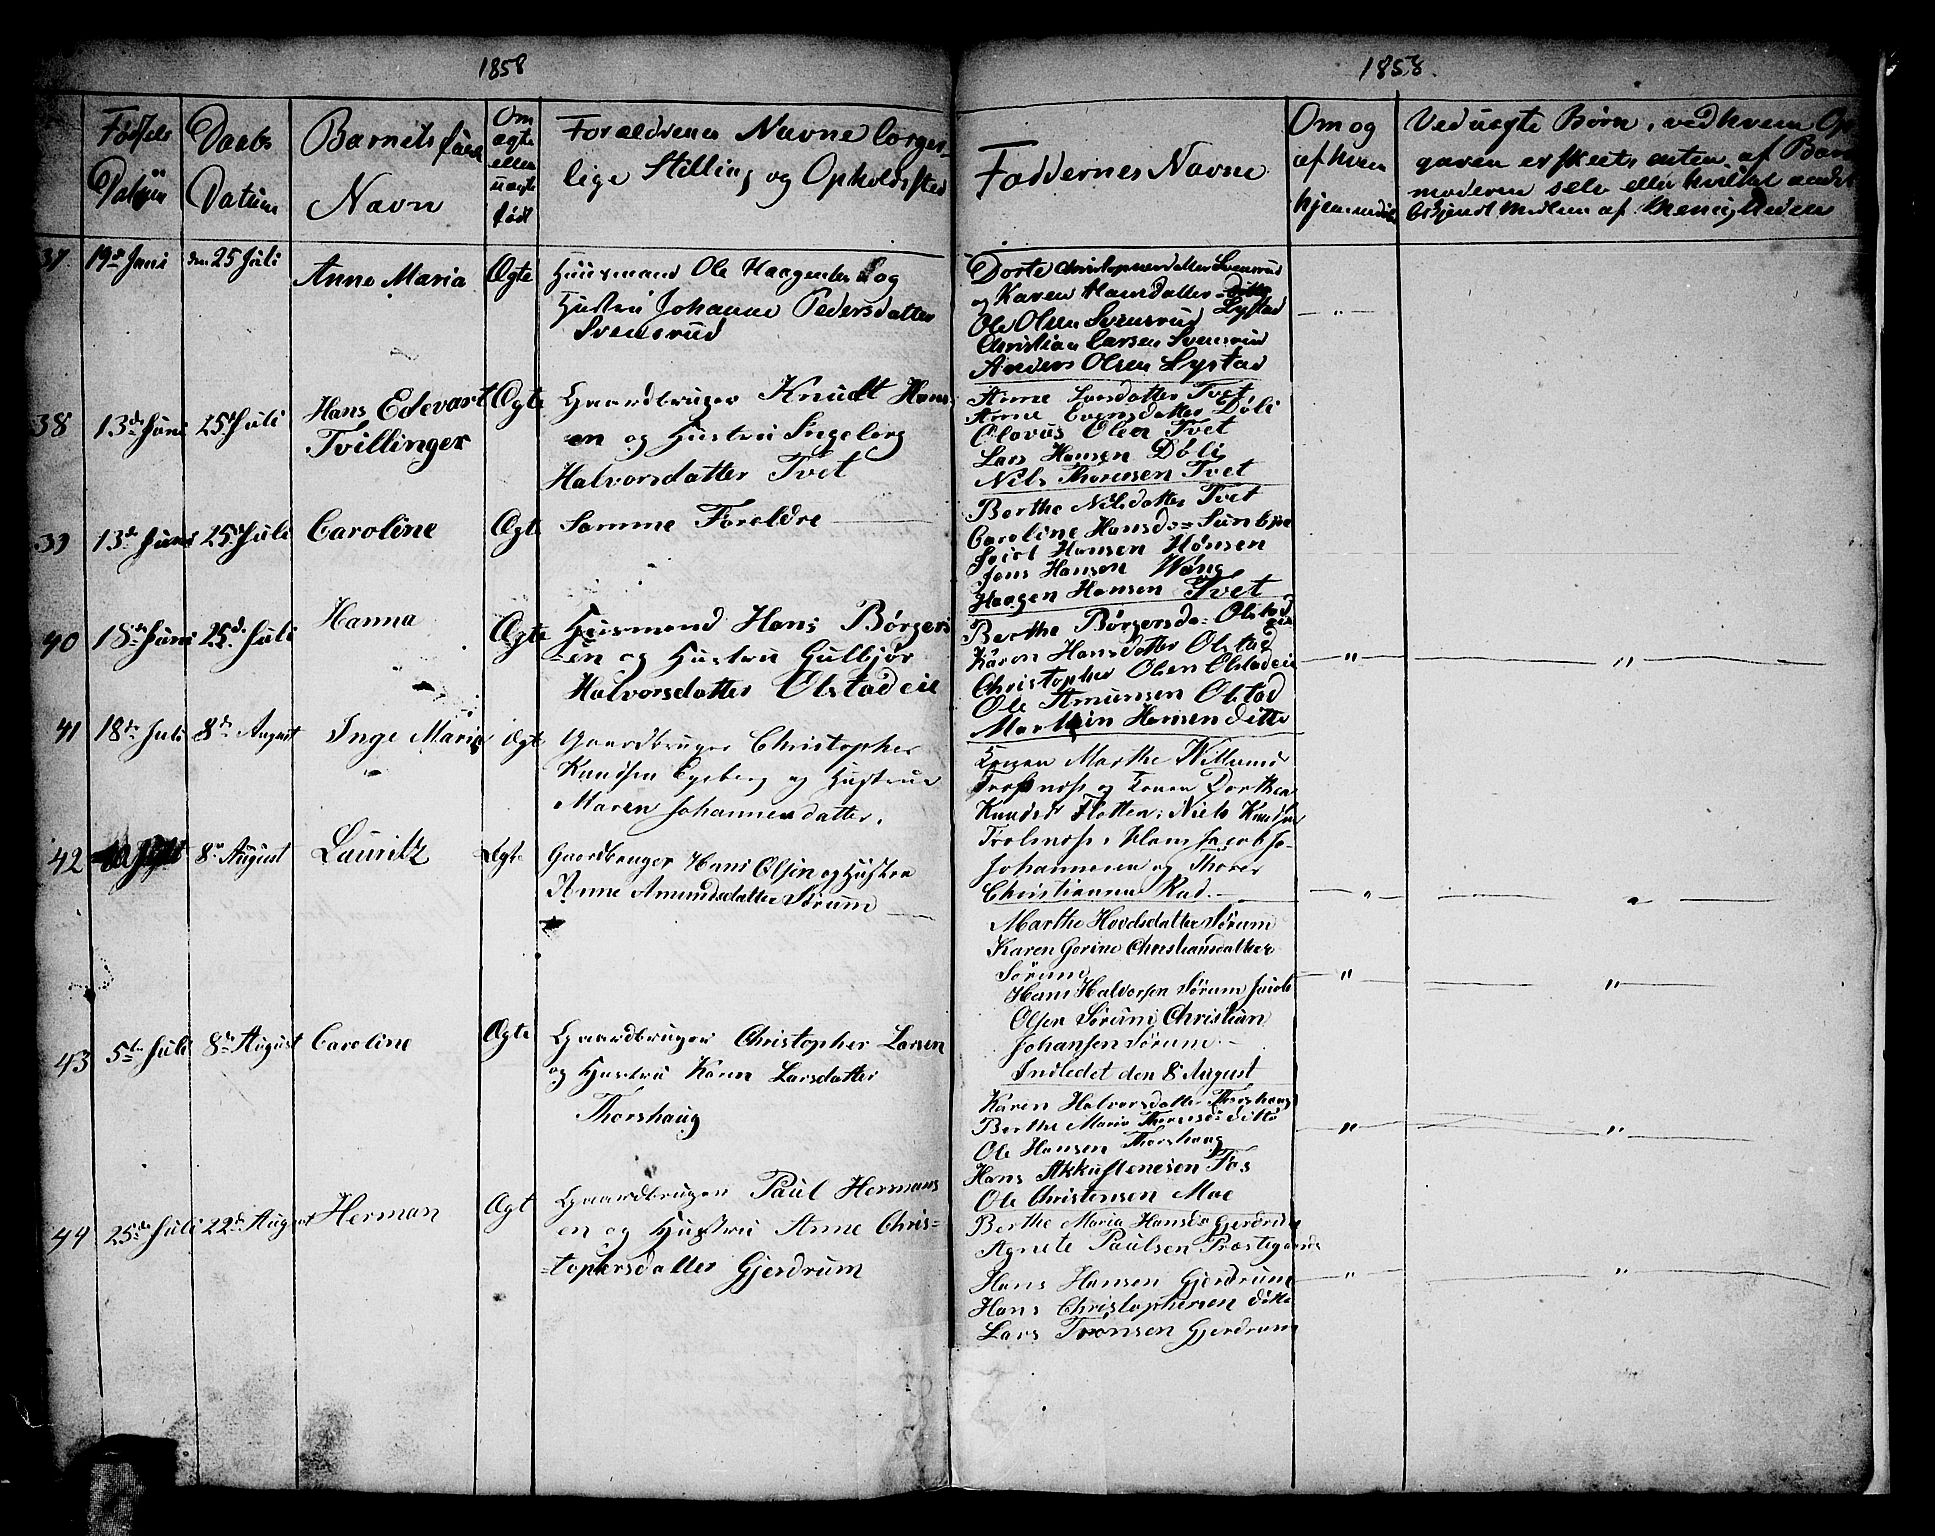 1858
1858.
Fødsels Datum
Daabs Datum
Barnets fulde Navn
Om ægte eller uægte født
Forældrenes Navne borger-
lige Stilling og Opholdssted
Faddernes Navne
Om og af hvem hjemmedøbt
Ved uægte Børn, ved hvem Op
gaven er skeet, enten af Bar
moderen selv eller hvilket andet
bekjendt Medlem af Menigheden
37 19de Juni den 25 Juli Anne Maria Ægte
Huusmand Ole Haagensen og
Hustru Johanne Pedersdatter
Svensrud
Dorte Christophersdatter Svensrud
og Karen Hansdatter Lystad
Ole Olsen Svensrud
Christian Larsen Svensrud
Anders Olsen Lystad
38 13de Juni 25de Juli Hans Edevart Tvillinger Ægte
Gaardbruger Knudt Hans
en og Hustru Ingeborg
Halvorsdatter Tvet
Anne Larsdatter Tvet
Anne Evensdatter Døli
Olavus Olsen Tvet
Lars Hansen Døli
Nils Thoresen Tvet
39 13de Juni 25de Juli Caroline Ægte
Samme Foreldre
Berthe Nilsdatter Tvet
Caroline Hansd=
Hansen Hønsen
Jens Hansen Wang
Haagen Hansen Tvet
40 18de Juni 25de Juli Hanna Ægte
Husmand Hans Børgers
=en og Hustru Gulbjør
Halvorsdatter Olstadeie
Berthe Børgersd= Olstadeie
Karen Hansdatter Olstad
Christopher Olsen Olstadeie
Ole Amunsen Olstad
Marthin Hansen ditto
41 18de Juli 8de August Inge Marie Ægte
Gaardbruger Christopher
Knudsen Egeberg og Hustrue
Maren Johannesdatter.
Konen Marthe Willums
og Konen Dorthea
Knudsd Flatten, Niels Knudsen
Jacobs-
Johannesen og Thorer
Christiansen Rud.
42 8de August Lauritz Ægte
Gaardbruger Hans Olsen og Hustru
Anne Amundsdatter Sørum
Marthe Hovelsdatter Sørum
Karen Gorine Christiansdatter
Sørum
Hans Halvorsen Sørum Jacob
Olsen Sørum, Christian
Johansen Sørum
Indledet den 8 August
43 5te Juli 8de August Caroline Ægte
Gaardbruger Christopher Larsen
og Hustru Karen Larsdatter
Thorshaug
Karen Halvorsdatter Thorshaug
Berthe Marie Thoresd: ditto
Ole Hansen Thorshaug
Hans Fos
Ole Christensen Moe
44 25de Juli 22de August Herman Ægt
Gaardbruger Paul Hermans
en og Hustru Anne Chris=
=tophersdatter Gjerdrum
Berthe Maria Hansd Gjerdrum
Agnete Paulsen Præstegaard
Hans Hansen Gjerdrum
Hans Christophersen ditto
Lars Tronsen Gjerdrum